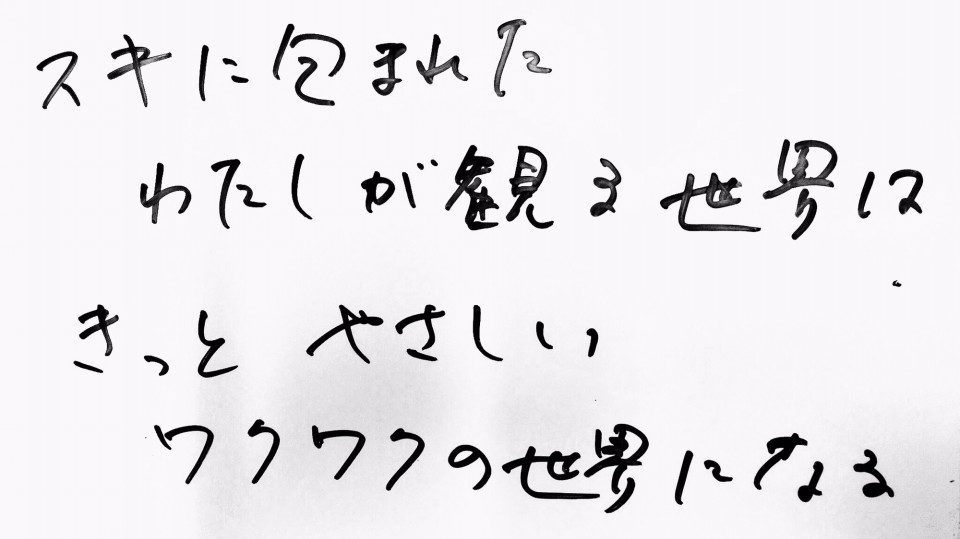 スキに包まれた
わたしが観る世界は
きっと やさしい
ワクワクの世界になる